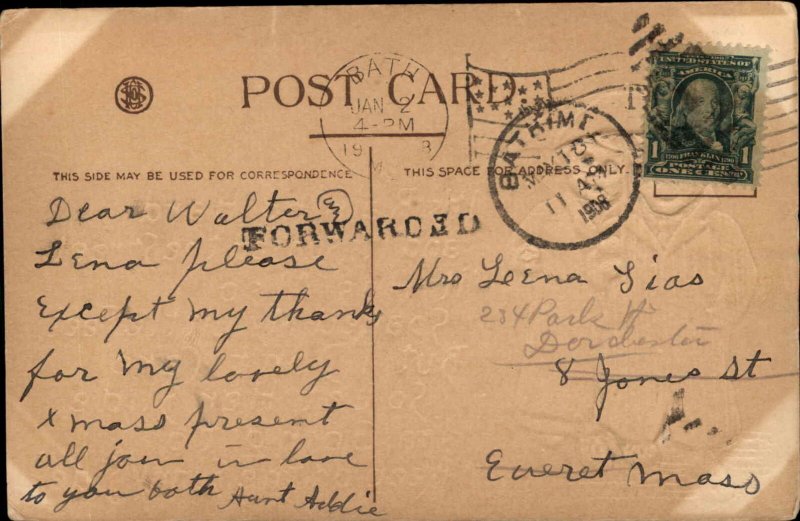 POST CARD
BATH
JAN 2
4-PM
THIS SIDE MAY BE USED FOR CORRESPONDENCE
THIS SPACE FOR ADDRESS ONLY.
11 A
1908
UNITED STATES OF AMERICA
FRANKLIN
POSTAGE
1 ONE CENT 1
FORWARDED
Dear Walter &
Lena please
Except my thanks
for my lovely
x mass present
all join in love
to you both Aunt Addie
Mrs Leena Sias
234 Park St
Dorchester
8 Jones St
Everet Mass